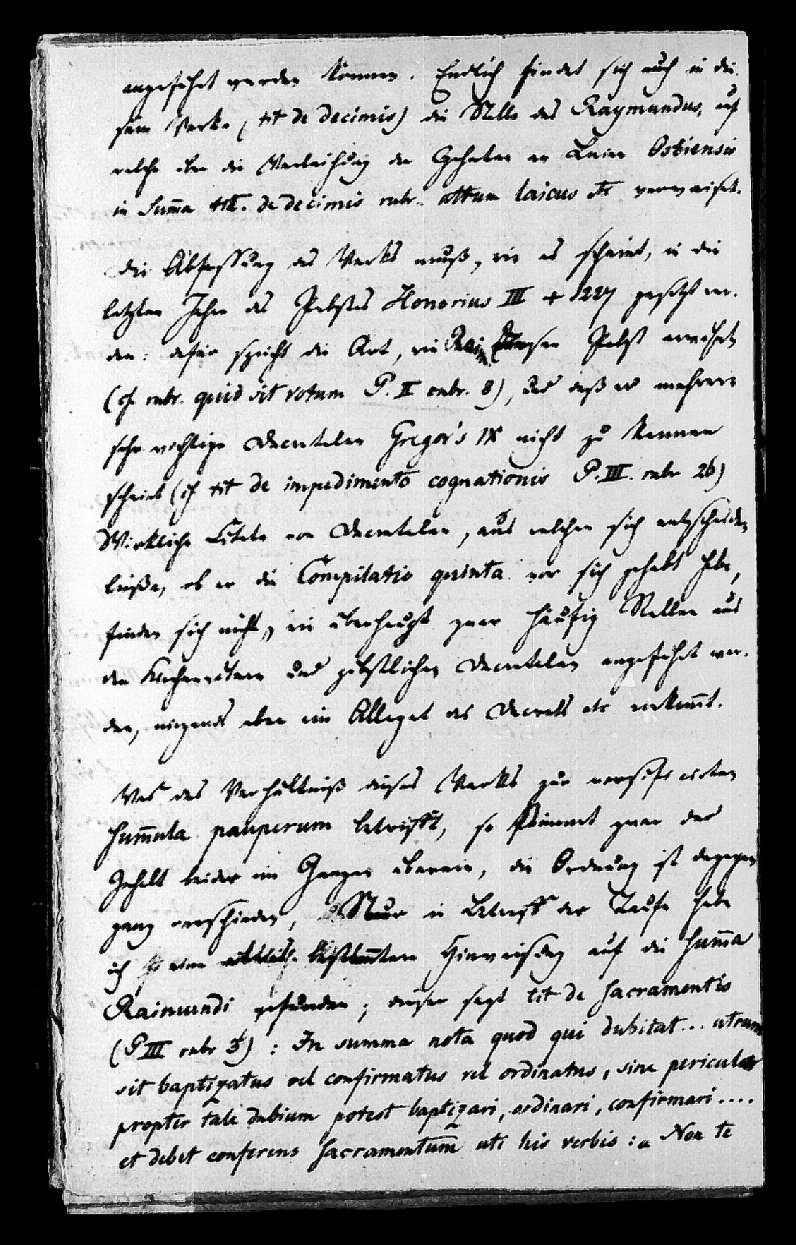 angeführt werden können. Endlich findet sich auch in die-
sem Werke (tit de decimis) die Stelle des Raymundus, auf
welche über die Verleihung der Zehnten an Laien Ostiensis
in Summa tit. de decimis rubr. ottum laicus etc verweiset.
Die Abfassung des Werks muß, wie es scheint, in die
letzten Jahre des Pabstes Honorius III + 1227 gesetzt wer-
den: dafür spricht die Art, wie diesen Pabst erwähnt
(cf. rubr. quid sit votum P. II rubr. 8), und daß er mehrere
sehr wichtige Decretalen Gregor's IX nicht zu kennen
scheint (cf tit de impedimento cognationis P. III. rubr 26)
Wirkliche Citate von Decretalen, aus welchen sich entscheiden
ließe, ob er die Compilatio quinta vor sich gehabt habe,
finden sich nicht, wie überhaupt zwar häufig Stellen aus
den Kirchenvätern und päbstlichen Decretalen angeführt wer-
den, nirgends aber ein Allegat des Decrets etc vorkommt.
Was das Verhältniß dieses Werks zur
Summula pauperum betrifft, so stimmt zwar der
Inhalt beider im Ganzen überein, die Ordnung ist dagegen
ganz verschieden, Nur in Betreff der Taufe habe
ich eine Hinweisung auf die Summa
Raimundi gefunden; dieser sagt tit de sacramentis
(P III rubr 3) : In summa nota quod qui dubitat... utrum
sit baptizatus vel confirmatus vel ordinatus, sine periculo
propter tale dubium potest baptizari, ordinari, confirmari ....
et debet conferens sacramentum uti his verbis: „ Non te